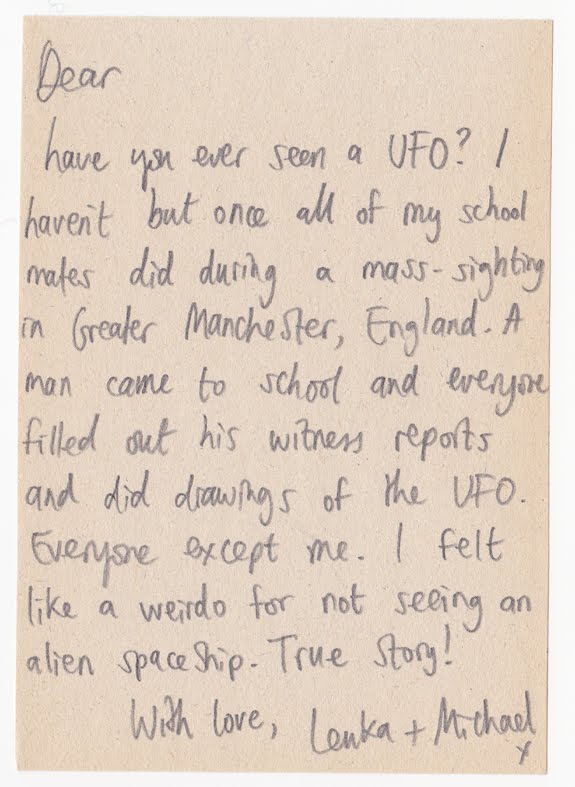 Dear
have you ever seen a UFO? I
haven't but once all of my school
mates did during a mass-sighting
in Greater Manchester, England. A
man came to school and everyone
filled out his witness reports
and did drawings of the UFO.
Everyone except me. I felt
like a weirdo for not seeing an
alien spaceship. True Story!
With love, Lenka + Michael
x